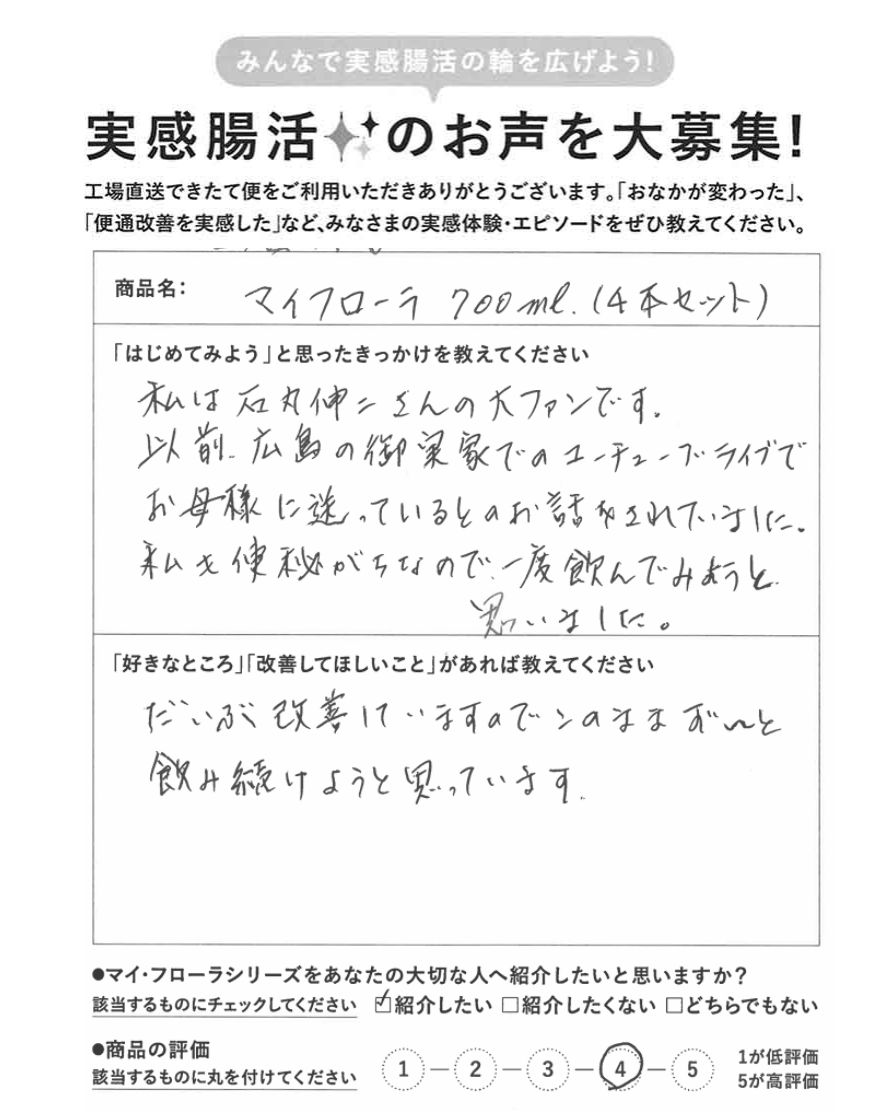 みんなで実感腸活の輪を広げよう!
実感腸活のお声を大募集!
工場直送できたて便をご利用いただきありがとうございます。「おなかが変わった」、
「便通改善を実感した」など、みなさまの実感体験・エピソードをぜひ教えてください。
商品名: マイフローラ 700ml.(4本セット)
「はじめてみよう」と思ったきっかけを教えてください
私は石丸伸二さんの大ファンです。
以前、広島の御実家でのユーチューブライブで
お母様に送っているとのお話をされていました。
私も便秘がちなので、一度飲んでみようと
思いました。
「好きなところ」「改善してほしいこと」があれば教えてください
だいぶ改善していますのでこのままず〜と
飲み続けようと思っています.
●マイ・フローラシリーズをあなたの大切な人へ紹介したいと思いますか?
該当するものにチェックしてください ☑紹介したい □紹介したくない □どちらでもない
●商品の評価
該当するものに丸を付けてください 1 2 3 4 5
1が低評価
5が高評価